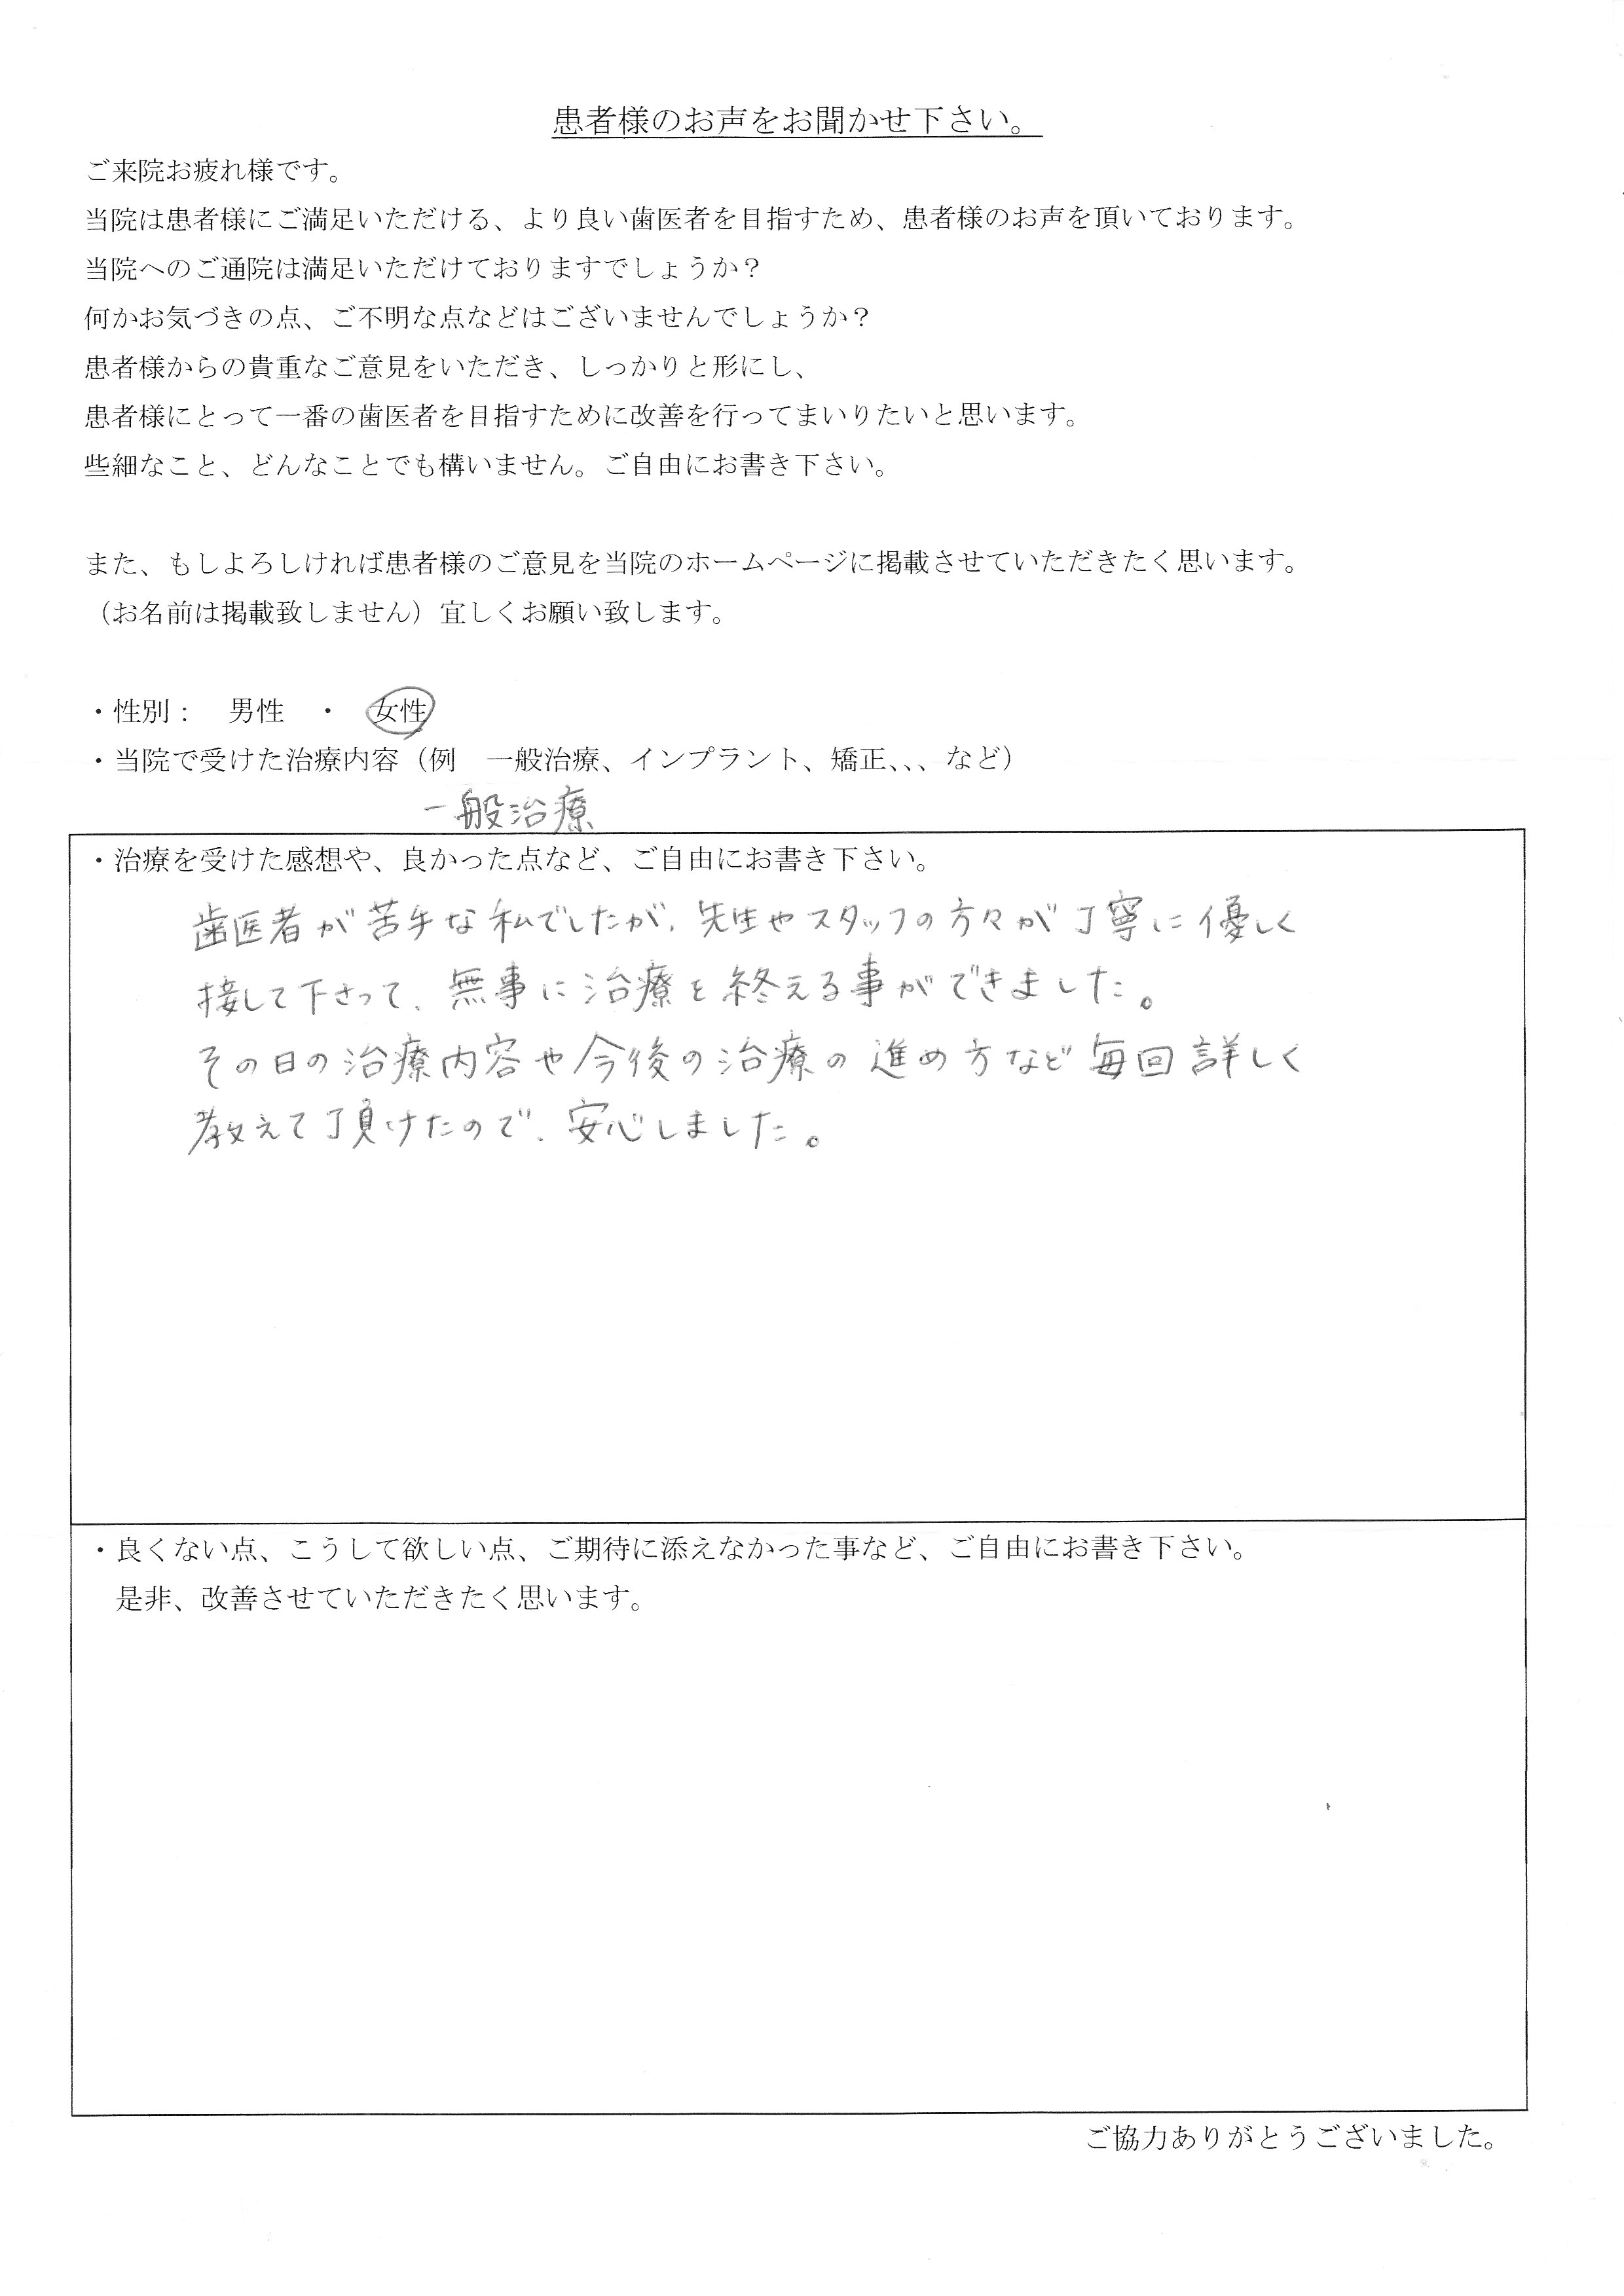 患者様のお声をお聞かせ下さい。
ご来院お疲れ様です。
当院は患者様にご満足いただける、より良い歯医者を目指すため、患者様のお声を頂いております。
当院へのご通院は満足いただけておりますでしょうか？
何かお気づきの点、ご不明な点などはございませんでしょうか？
患者様からの貴重なご意見をいただき、しっかりと形にし、
患者様にとって一番の歯医者を目指すために改善を行ってまいりたいと思います。
些細なこと、どんなことでも構いません。ご自由にお書き下さい。
また、もしよろしければ患者様のご意見を当院のホームページに掲載させていただきたく思います。
（お名前は掲載致しません）宜しくお願い致します。
・性別： 男性 ・ 女性
・当院で受けた治療内容（例 一般治療、インプラント、矯正、、、など）
一般治療
・治療を受けた感想や、良かった点など、ご自由にお書き下さい。
歯医者が苦手な私でしたが、先生やスタッフの方々が丁寧に優しく
接して下さって、無事に治療を終える事ができました。
その日の治療内容や今後の治療の進め方など毎回詳しく
教えて頂けたので、安心しました。
・良くない点、こうして欲しい点、ご期待に添えなかった事など、ご自由にお書き下さい。
是非、改善させていただきたく思います。
ご協力ありがとうございました。